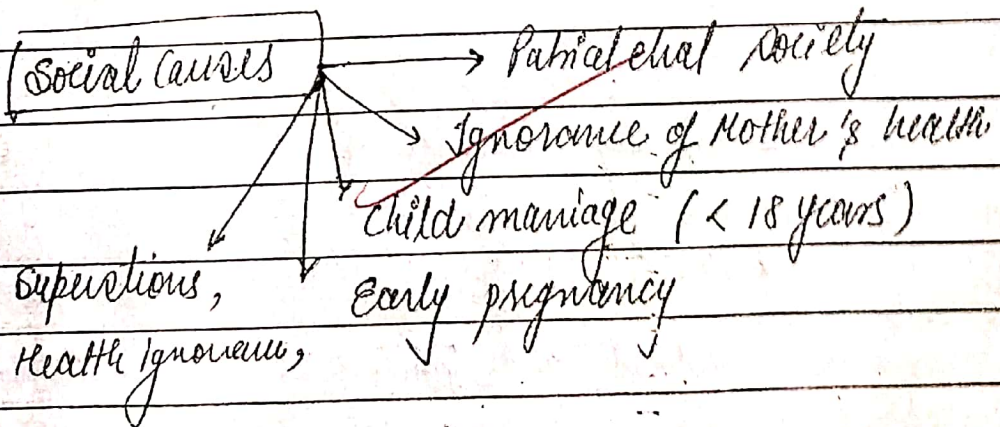 Social Causes
Patriarchal society
Ignorance of Mother's health
Child marriage (< 18 years)
Early pregnancy
Superstions,
Health Ignorance,